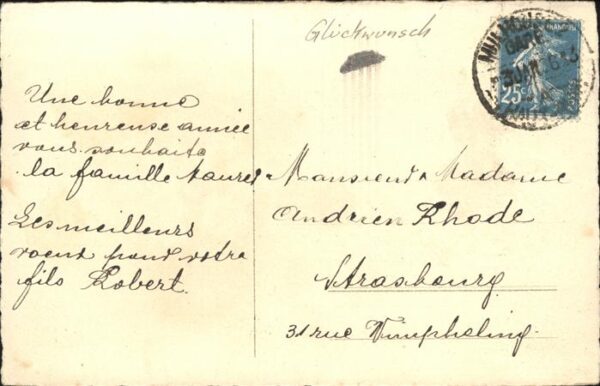 Glückwunsch
MULHOUSE
GARE
25c
Une bonne
et heureuse année
vous souhaite
la famille
Les meilleurs
voeux pour votre
fils Robert.
Monsieur & Madame
Andrien Rhode
Strasbourg
31 rue Wimpheling.